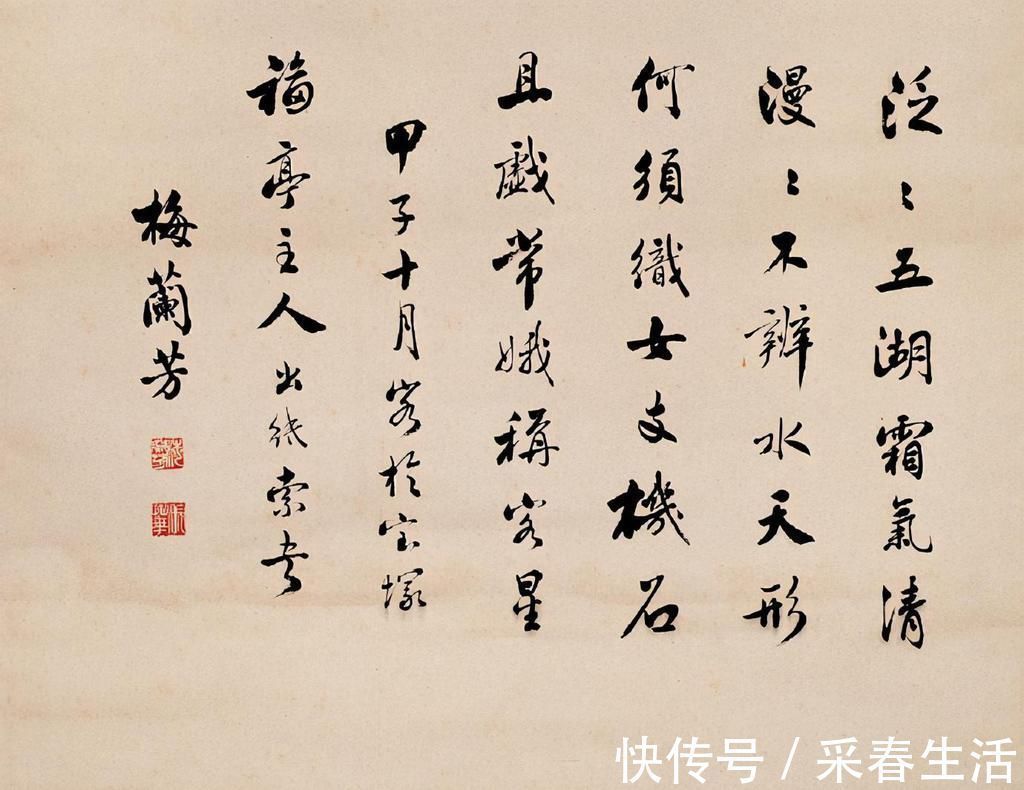 泛〻五湖霜氣清
漫〻不辨水天形
何須織女支機石
且戲常娥稱客星
甲子十月客於宝塚
福亭主人出紙索書
梅蘭芳
快传号/采春生活